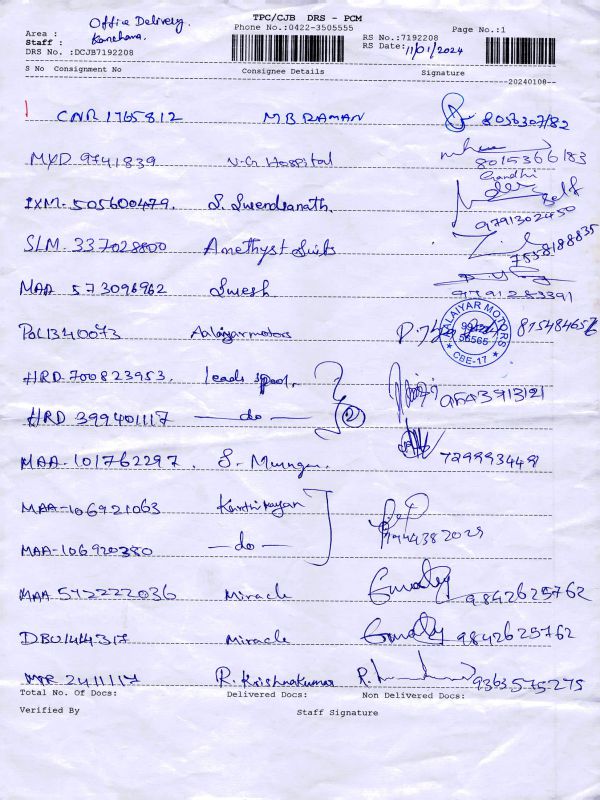 Office Delivery.
TPC/CJB DRS - PCM
Area : Kanchana.
Phone No.:0422-3505555
Page No.:1
Staff :
RS No.:7192208
DRS No. :DCJB7192208
RS Date: 11/01/2024
S No Consignment No Consignee Details Signature
20240108
1 CNR 1765812 M B RAMAN 8056307182
MYD 9741839 N.G Hospital 8015366183
Gandhi
IXM- 505600479. S. Surendranath. Self
9791302450
SLM- 337028800 Amethyst Suits 7538188835
MAA 573096962 Suresh 9791283391
POL1340073 Aalaiyar motors 8154846567
AALAIYAR MOTORS
CBE-17
HRD 700823953. Leads spool.
HRD 399401117 do 2
MAA-101762297. S. Murugan. 7299993449
MAA-106921063 Karthikeyan
MAA-106920380 do
MAA 542222036 Miracle Gomathy 9842625762
DBU1414317 Miracle Gomathy 9842625762
2411117 R. Krishnakumar R. 9363575275
Total No. Of Docs: Delivered Docs: Non Delivered Docs:
Verified By Staff Signature